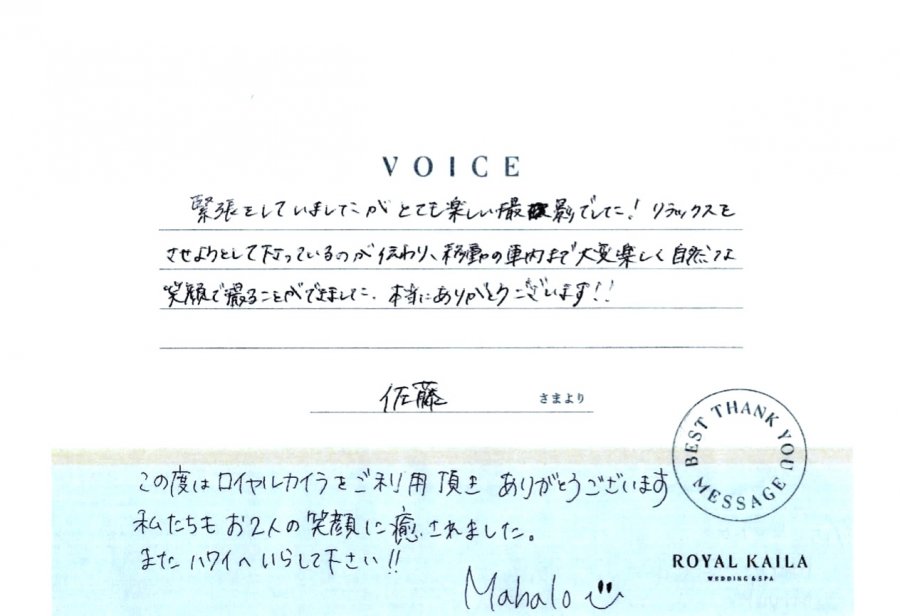 VOICE
緊張をしていましたがとても楽しい撮影でした！リラックスを
させようとして下さっているのが伝わり、移動の車内まで大変楽しく自然な
笑顔で撮ることができました。本当にありがとうございます！！
佐藤 さまより
BEST THANK YOU MESSAGE
この度はロイヤルカイラをご利用頂き ありがとうございます
私たちもお2人の笑顔に癒されました。
またハワイへいらして下さい!!
Mahalo
ROYAL KAILA
WEDDING & SPA